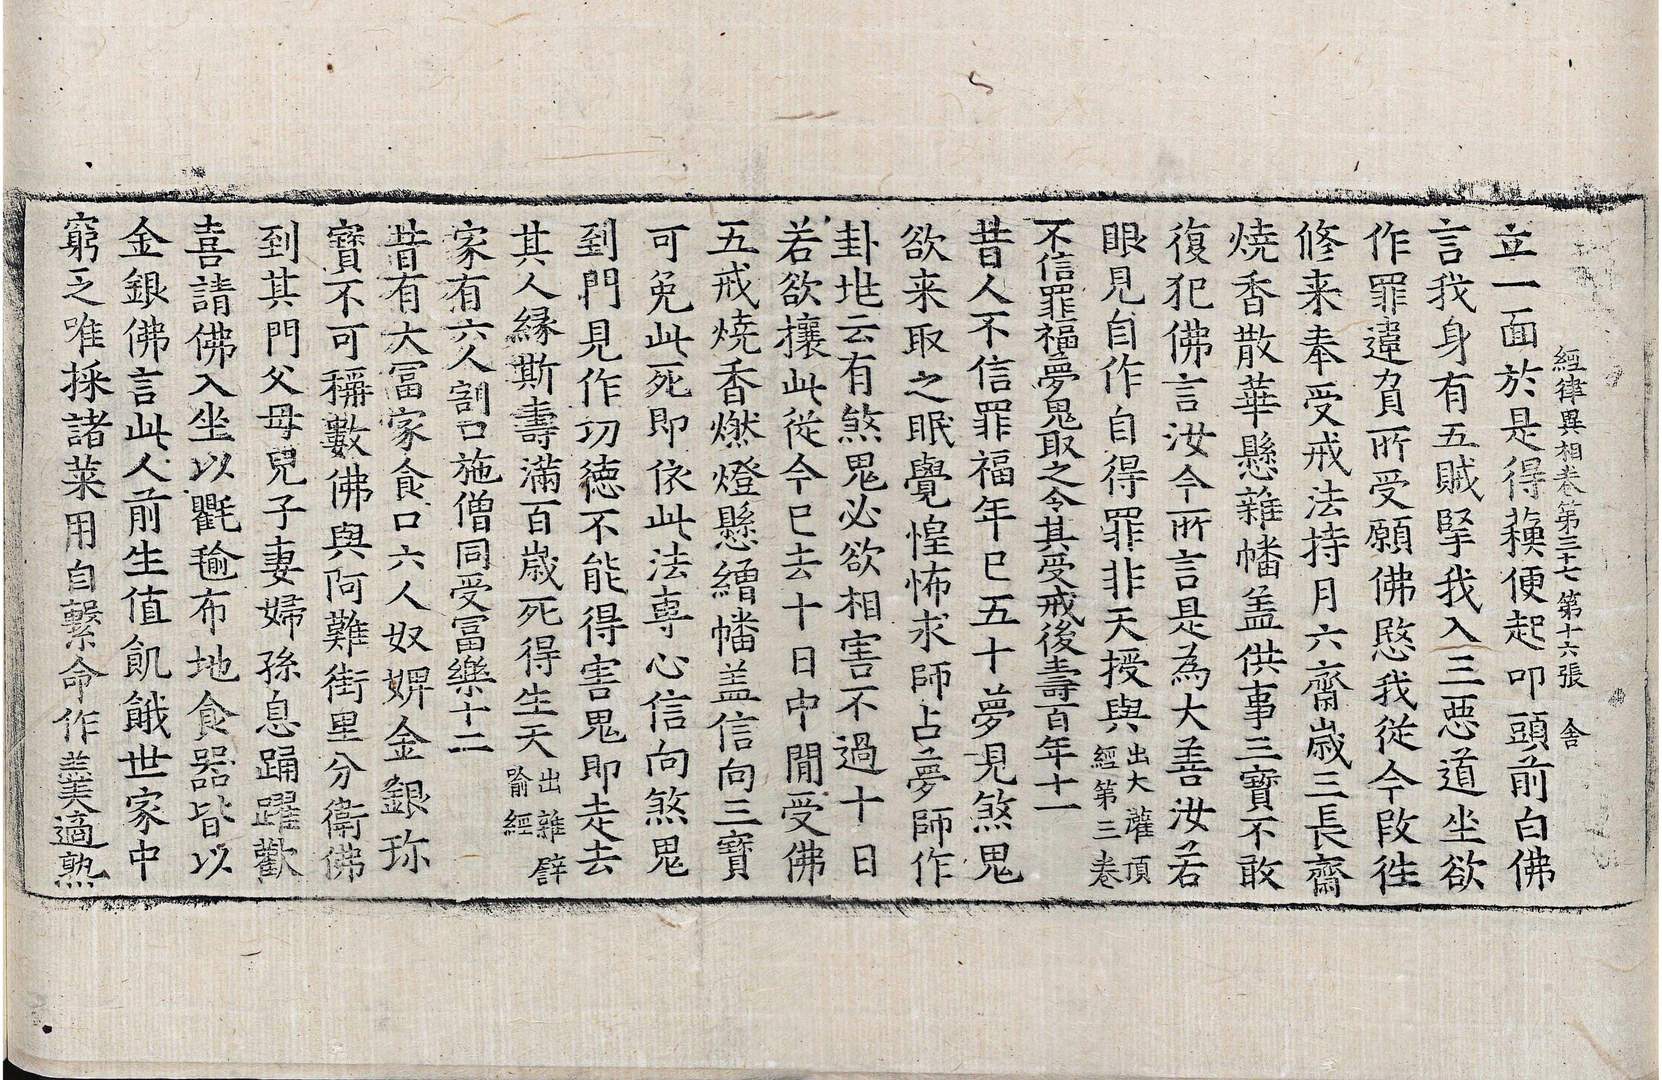 經律異相卷第三十七 第十六張 舍
立一面於是得蘓便起叩頭前白佛
言我身有五賊牽我入三惡道坐欲
作罪違負所受願佛愍我從今改往
修来奉受戒法持月六齋歲三長齋
燒香散華懸雜幡盖供事三寶不敢
復犯佛言汝今所言是為大善汝若
眼見自作自得罪非天授與出大灌頂經第三卷
不信罪福夢鬼取之令其受戒後壽百年十一
昔人不信罪福年已五十夢見煞鬼
欲来取之眠覺惶怖求師占夢師作
卦地云有煞鬼必欲相害不過十日
若欲攘此從今已去十日中間受佛
五戒燒香燃燈懸繒幡盖信向三寶
可免此死即依此法專心信向煞鬼
到門見作功德不能得害鬼即走去
其人緣斯壽滿百歲死得生天出雜譬喻經
家有六人割口施僧同受冨樂十二
昔有大冨家食口六人奴婢金銀珎
寶不可稱數佛與阿難街里分衛佛
到其門父母兒子妻婦孫息踊躍歡
喜請佛入坐以氍毹布地食器皆以
金銀佛言此人前生值飢餓世家中
窮乏唯採諸菜用自繫命作羹適熟